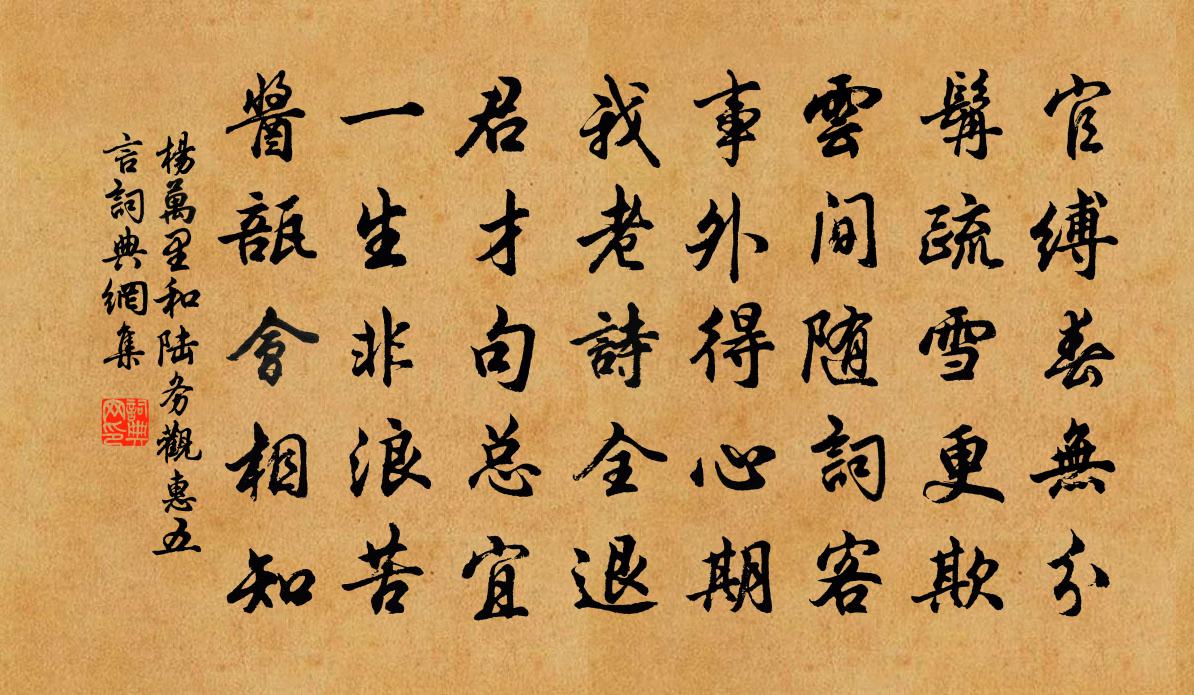 官縛春無分
鬅疏雪更欺
雲間随詞客
事外得心期
我老詩全退
君才句总宜
一生非浪苦
醬瓿會相知
楊萬里和陆务觀惠五
言詞典網集
詞典网印